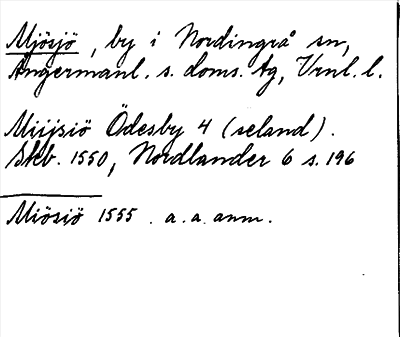 Mjösjö, by i Nordingrå sn,
Ångermanl. s. doms. tg, Vrnl. l.
Miijsiö Ödesby 4 (seland).
Skb. 1550, Nordlander 6 s. 196
Miösiö 1555. a. a. anm.